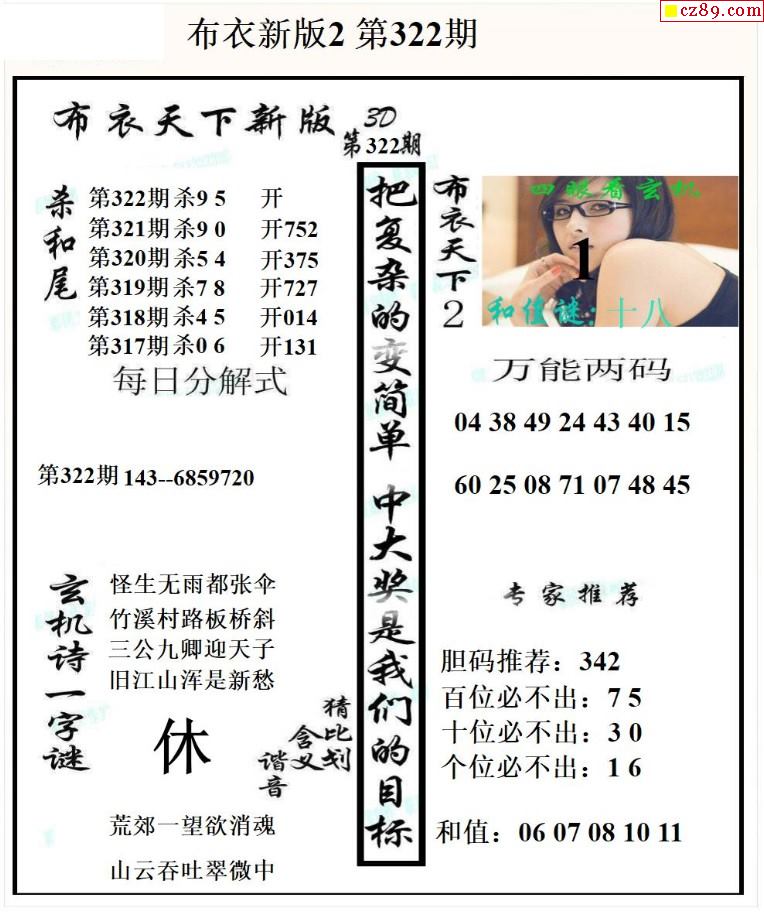 cz89.com
布衣新版2 第322期
布衣天下新版 3D
第322期
杀和尾
第322期 杀9 5 开
第321期 杀9 0 开752
第320期 杀5 4 开375
第319期 杀7 8 开727
第318期 杀4 5 开014
第317期 杀0 6 开131
每日分解式
第322期 143--6859720
玄机诗一字谜
怪生无雨都张伞
竹溪村路板桥斜
三公九卿迎天子
旧江山浑是新愁
休
猜比划
含义
谐音
荒郊一望欲消魂
山云吞吐翠微中
把复杂的变简单 中大奖是我们的目标
布衣天下2
四眼看玄机
1
和值谜:十八
万能两码
04 38 49 24 43 40 15
60 25 08 71 07 48 45
专家推荐
胆码推荐：342
百位必不出：7 5
十位必不出：3 0
个位必不出：1 6
和值：06 07 08 10 11